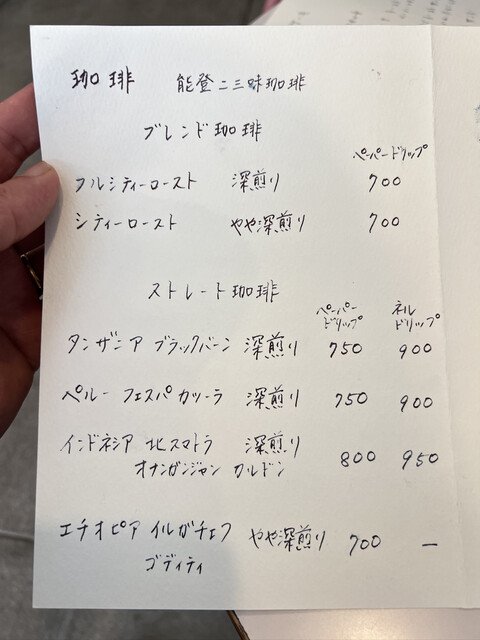 珈琲 能登二三味珈琲
ブレンド珈琲
ペーパードリップ
フルシティーロースト 深煎り 700
シティーロースト やや深煎り 700
ストレート珈琲
ペーパードリップ ネルドリップ
タンザニア ブラックバーン 深煎り 750 900
ペルー フェスパ カツーラ 深煎り 750 900
インドネシア 北スマトラ 深煎り 800 950
オナンガンジャン カルドン
エチオピア イルガチェフ やや深煎り 700 ー
ゴディティ